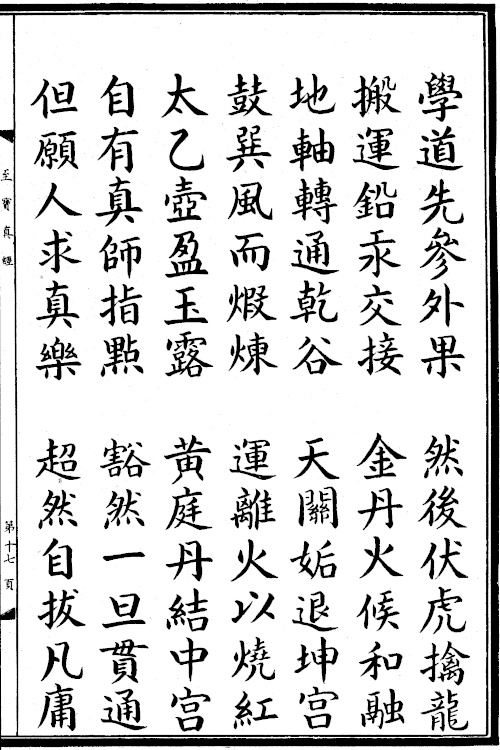 學道先參外果 然後伏虎擒龍
搬運鉛汞交接 金丹火候和融
地軸轉通乾谷 天關姤退坤宮
鼓巽風而煆煉 運離火以燒紅
太乙壺盈玉露 黃庭丹結中宮
自有真師指點 豁然一旦貫通
但願人求真樂 超然自拔凡庸
至寶真經
第十七頁